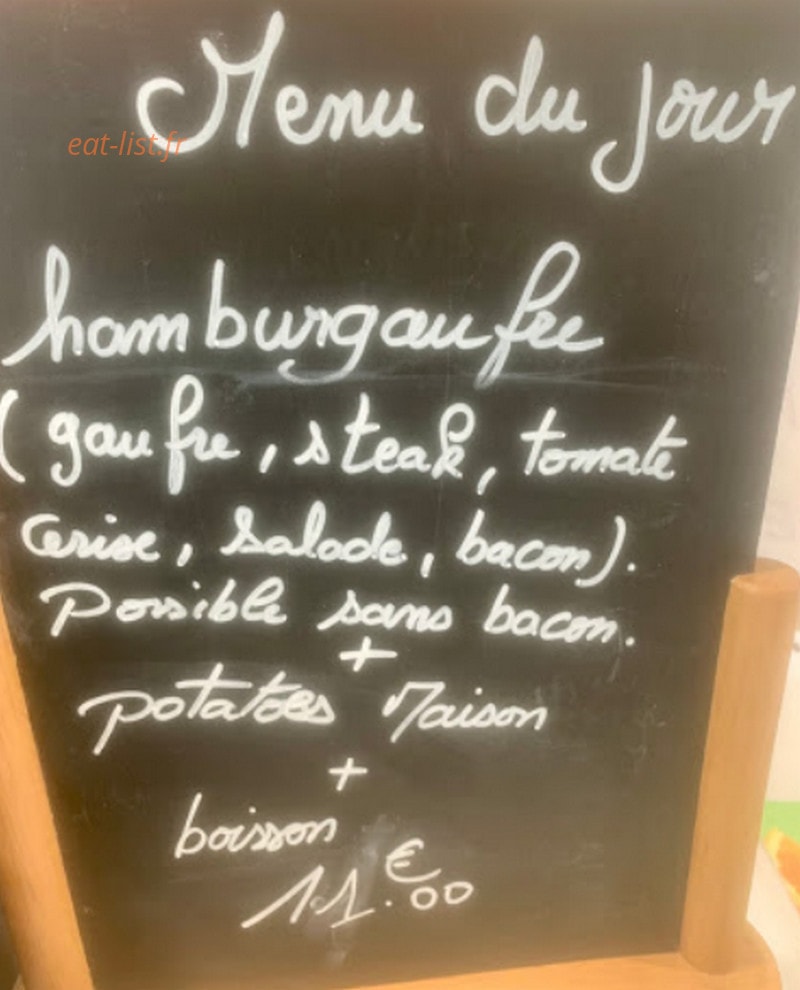 Menu du jour
eat-list.fr
hamburgaufre
(gaufre, steak, tomate
cerise, salade, bacon).
Possible sans bacon.
+
potatoes Maison
+
boisson
11.€00